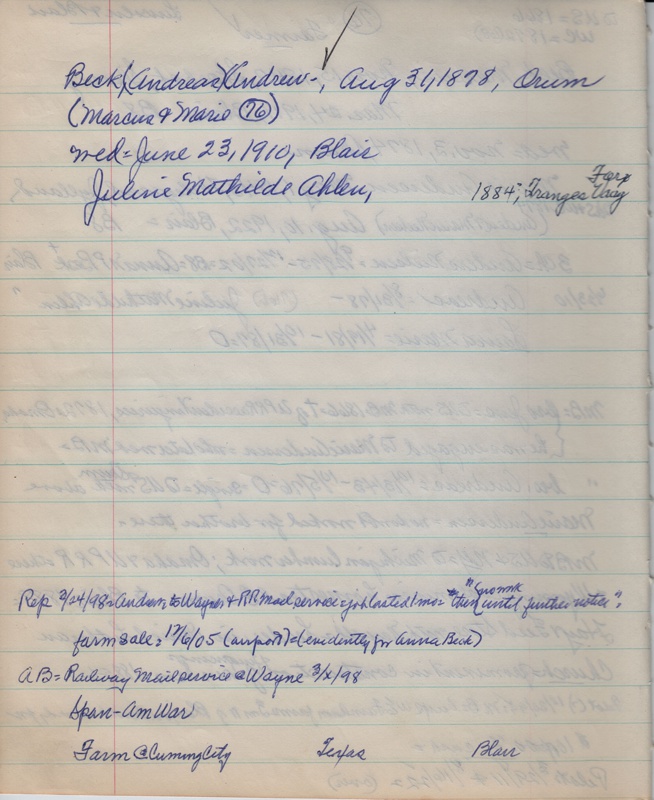 Beck, (Andreas) (Andrew-, Aug 31, 1878, Orum
(Marcus & Marie 76)
med = June 23, 1910, Blair
Juline Mathilde Ahlen, 1884; Tranges Vaag
Rep 2/24/98 = Andrew to Wayne & RR mail service = job lasted 1 mo = "then until further notice".
farm sale: 12/6/05 (airport) = (evidently for Anna Beck)
AB = Railway Mail service @ Wayne 3/x/98
Span-Am War
Farm @ Cuming City Texas Blair